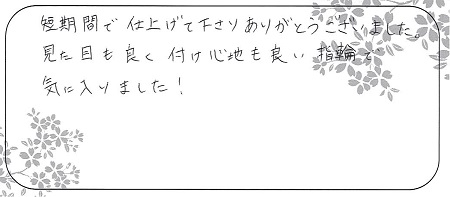 短期間で仕上げて下さりありがとうございました。
見た目も良く付け心地も良い指輪で
気に入りました!